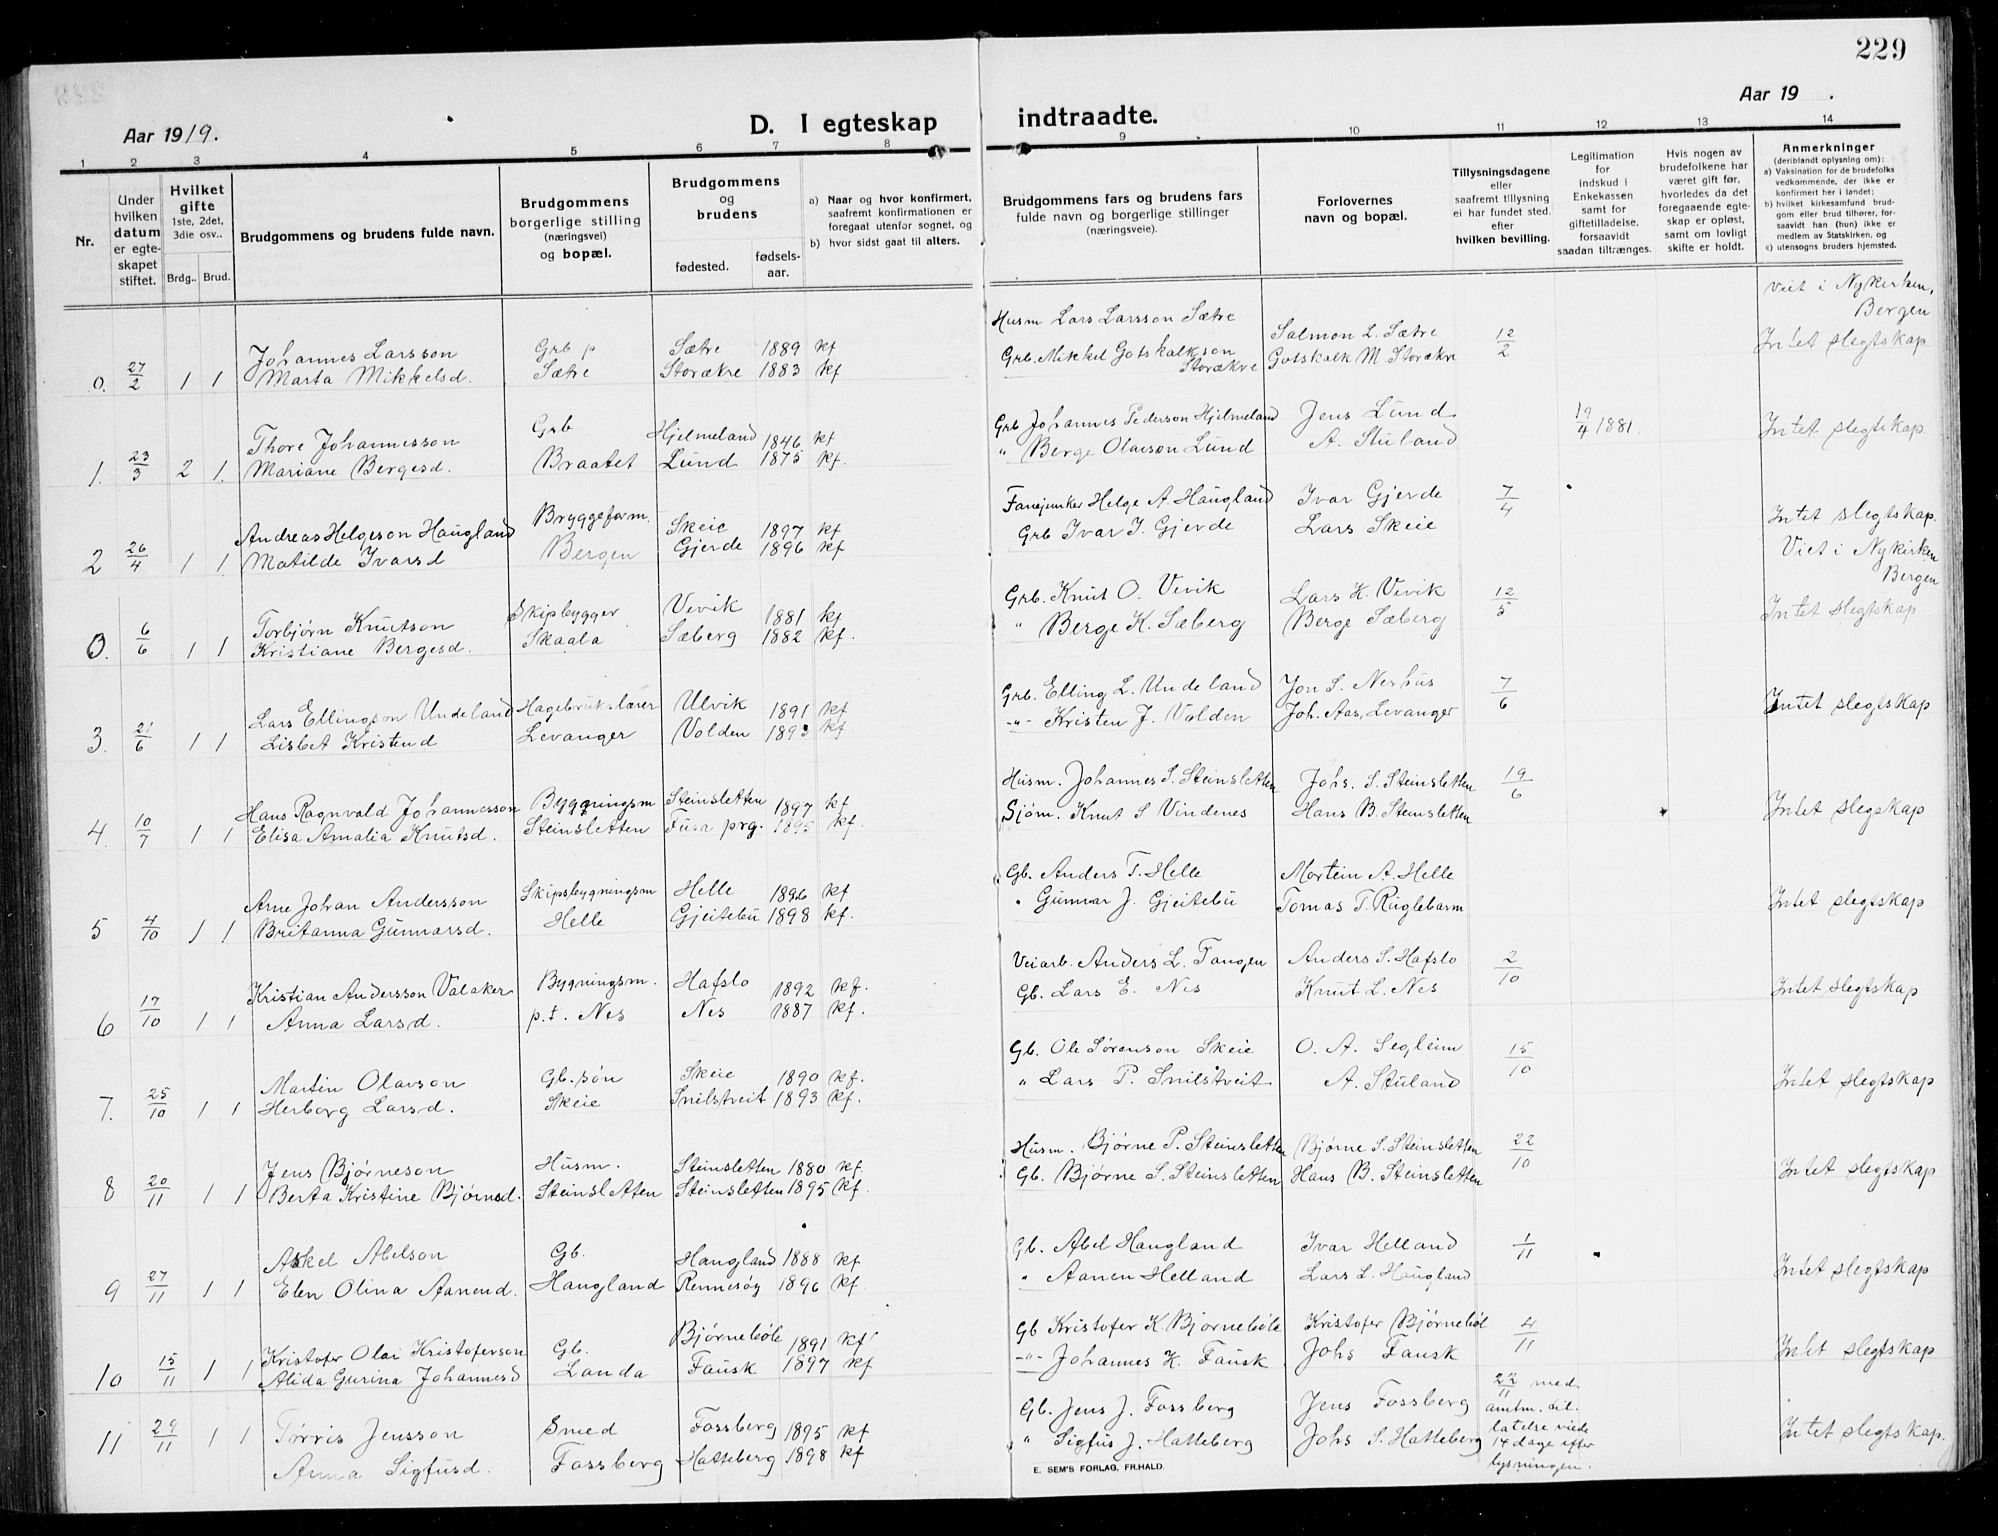 229
Aar 1919.
D. I egteskap indtraadte.
Aar 19 .
1 2 3 4 5 6 7 8 9 10 11 12 13 14
Nr.
Under hvilken datum er egteskapet stiftet.
Hvilket gifte 1ste, 2det, 3die osv..
Brdg.. Brud.
Brudgommens og brudens fulde navn.
Brudgommens borgerlige stilling (næringsvei) og bopæl.
Brudgommens og brudens
fødested. fødselsaar.
a) Naar og hvor konfirmert, saafremt konfirmationen er foregaat utenfor sognet, og
b) hvor sidst gaat til alters.
Brudgommens fars og brudens fars fulde navn og borgerlige stillinger (næringsveie).
Forlovernes navn og bopæl.
Tillysningsdagene eller saafremt tillysning ei har fundet sted. efter hvilken bevilling.
Legitimation for indskud i Enkekassen samt for giftetilladelse, forsaavidt saadan tiltrænges.
Hvis nogen av brudefolkene har været gift før, hvorledes da det foregaaende egteskap er opløst, samt om lovligt skifte er holdt.
Anmerkninger (deriblandt oplysning om):
a) Vaksination for de brudefolks vedkommende, der ikke er konfirmert her i landet;
b) hvilket kirkesamfund brudgom eller brud tilhører, forsaavidt han (hun) ikke er medlem av Statskirken, og
c) utensogns bruders hjemsted.
0. 27/2 1 1 Johannes Larsson Grb p Sætre 1889 kf Husm Lars Larsson Sætre Salmon L. Sætre 12/2 Viet i Nykirken, Bergen
Marta Mikkelsd. Sætre Storækre 1883 kf Grb. Mikkel Gotskalkson Storækre Gotskalk M Storækre Intet slegtskap
1. 23/3 2 1. Thore Johannesson Grb Hjelmeland 1846 kf Grb Johannes Pederson Hjelmeland Jens Lund 19/4 1881. Intet slegtskap
Mariane Bergesd. Braatet Lund 1875 kf. " Berge Olavson Lund A. Stuland
2 26/4 1 1 Andreas Helgeson Haugland Bryggeform. Skeie 1897 kf Fanejunker Helge A Haugland Ivar Gjerde 7/4 Intet slegtskap.
Matilde Ivarsd Bergen Gjerde 1896 kf Grb Ivar I. Gjerde Lars Skeie
0. 6/6 1 1 Torbjørn Knutson Skipbygger Vevik 1881 kf Grb. Knut O. Vevik Lars K. Vevik 12/5 Viet i Nykirken Bergen
Kristiane Bergesd. Skaala Sæberg 1882 kf. " Berge K. Sæberg Berge Sæberg Intet slegtskap
3. 21/6 1 1 Lars Ellingson Undeland Hagebrukslærer Ulvik 1891 kf Grb. Elling L. Undeland Jon S. Nerhus 7/6 Intet slegtskap
Lisbet Kristend Levanger Volden 1893 kf -"- Kristen J. Volden Joh. Aas, Levanger
4. 10/7 1 1 Hans Ragnvald Johannesson Bygningsm Steinsletten 1897 kf Husm. Johannes S. Steinsletten Johs. S. Steinsletten 19/6 Intet slegtskap
Elisa Amalia Knutsd. Steinsletten Fusa prg. 1895 kf. Sjøm. Knut S Vindenes Hans B. Steinsletten
5 4/10 1 1 Arne Johan Andersson Skipsbygningsm Helle 1896 kf Gb. Anders T. Helle Mortein A. Helle Intet slegtskap
Britanna Gunnarsd. Helle Gjeitebu 1898 kf. " Gunnar J. Gjeitebu Tomas T. Ruglebarm
6 17/10 1 1 Kristian Andersson Valaker Bygningsm. Hafslo 1892 kf. Veiarb. Anders L. Tangen Anders S. Hafslo 2/10 Intet slegtskap
Anna Larsd. p.t. Nes Nes 1887 kf. Gb. Lars E. Nes Knut L. Nes
7. 25/10 1 1 Martin Olavson Gb. søn Skeie 1890 kf. Gb. Ole Sørenson Skeie O. A. Segleim 15/10 Intet slegtskap
Herborg Larsd. Skeie Snilstveit 1893 kf. " Lars P. Snilstveit A. Stuland
8 20/11 1 1 Jens Bjørneson Husm. Steinsletten 1880 kf. Husm. Bjørne P. Steinsletten Bjørne S. Steinsletten 22/10 Intet slegtskap
Berta Kristine Bjørnsd. Steinsletten Steinsletten 1895 kf. Gb. Bjørne S. Steinsletten Hans B. Steinsletten
9 27/11 1 1 Askel Abelson Gb. Haugland 1888 kf Gb. Abel Haugland Ivar Helland 1/11 Intet slegtskap
Elen Olina Aanend. Haugland Rennesøy 1896 kf. " Aanen Helland Lars L. Haugland
10 15/11 1 1 Kristofer Olai Kristoferson Gb. Bjørnebøle 1891 kf Gb Kristofer K. Bjørnebøle Kristofer Bjørnebøl 4/11 Intet slegtskap
Alida Gurina Johannesd Landa Fausk 1897 kf -"- Johannes K. Fausk Johs Fausk
11 29/11 1 1 Tørris Jensson Smed Fossberg 1895 kf Gb. Jens J. Fossberg Jens Fossberg 22/11 med amtm. tillatelse viede 14 dage efter lysningen. Intet slegtskap.
Anna Sigfusd. Fossberg Hatteberg 1898 kf " Sigfus J. Hatteberg Johs S. Hatteberg
E. SEM'S FORLAG, FR.HALD.